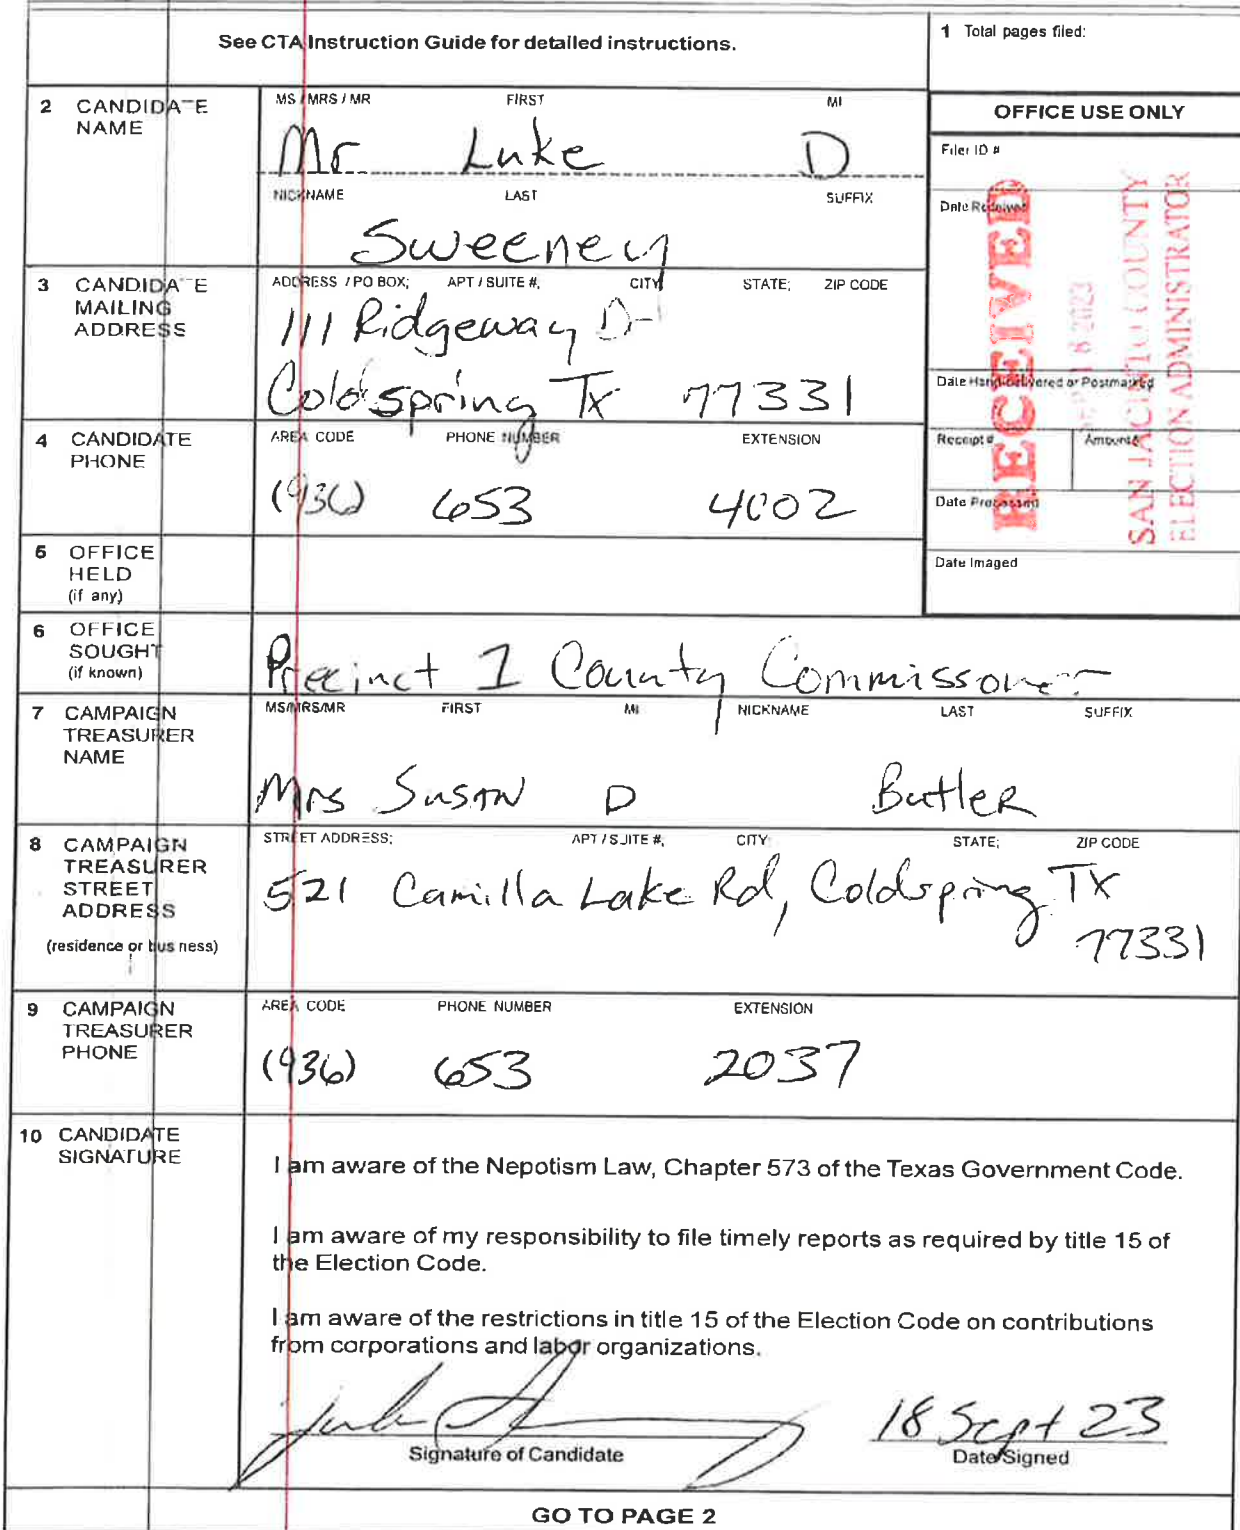 See CTA Instruction Guide for detailed instructions.
1 Total pages filed:
2 CANDIDATE NAME
MS / MRS / MR FIRST MI
Mr Luke D
NICKNAME LAST SUFFIX
Sweeney
OFFICE USE ONLY
Filer ID #
Date Received
Date Hand-delivered or Postmarked
Receipt # Amount $
Date Processed
Date Imaged
RECEIVED
SEP 18 2023
SAN JACINTO COUNTY
ELECTION ADMINISTRATOR
3 CANDIDATE MAILING ADDRESS
ADDRESS / PO BOX; APT / SUITE #; CITY; STATE; ZIP CODE
111 Ridgeway Dr
Coldspring Tx 77331
4 CANDIDATE PHONE
AREA CODE PHONE NUMBER EXTENSION
(936) 653 4002
5 OFFICE HELD
(if any)
6 OFFICE SOUGHT
(if known)
Precinct 1 County Commissoner
7 CAMPAIGN TREASURER NAME
MS/MRS/MR FIRST MI NICKNAME LAST SUFFIX
Mrs Susan D Butler
8 CAMPAIGN TREASURER STREET ADDRESS
(residence or business)
STREET ADDRESS; APT / SUITE #; CITY; STATE; ZIP CODE
521 Camilla Lake Rd, Coldspring TX
77331
9 CAMPAIGN TREASURER PHONE
AREA CODE PHONE NUMBER EXTENSION
(936) 653 2037
10 CANDIDATE SIGNATURE
I am aware of the Nepotism Law, Chapter 573 of the Texas Government Code.
I am aware of my responsibility to file timely reports as required by title 15 of
the Election Code.
I am aware of the restrictions in title 15 of the Election Code on contributions
from corporations and labor organizations.
18 Sept 23
Signature of Candidate Date Signed
GO TO PAGE 2